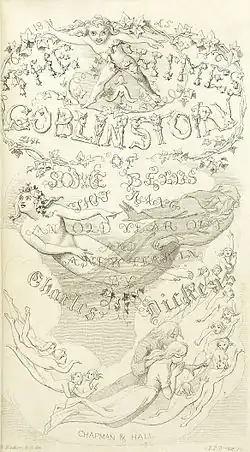 THE CHIMES
A
GOBLIN STORY
OF
SOME BELLS
THAT RANG
AN OLD YEAR OUT
AND A
NEW YEAR IN
BY
Charles Dickens
CHAPMAN & HALL